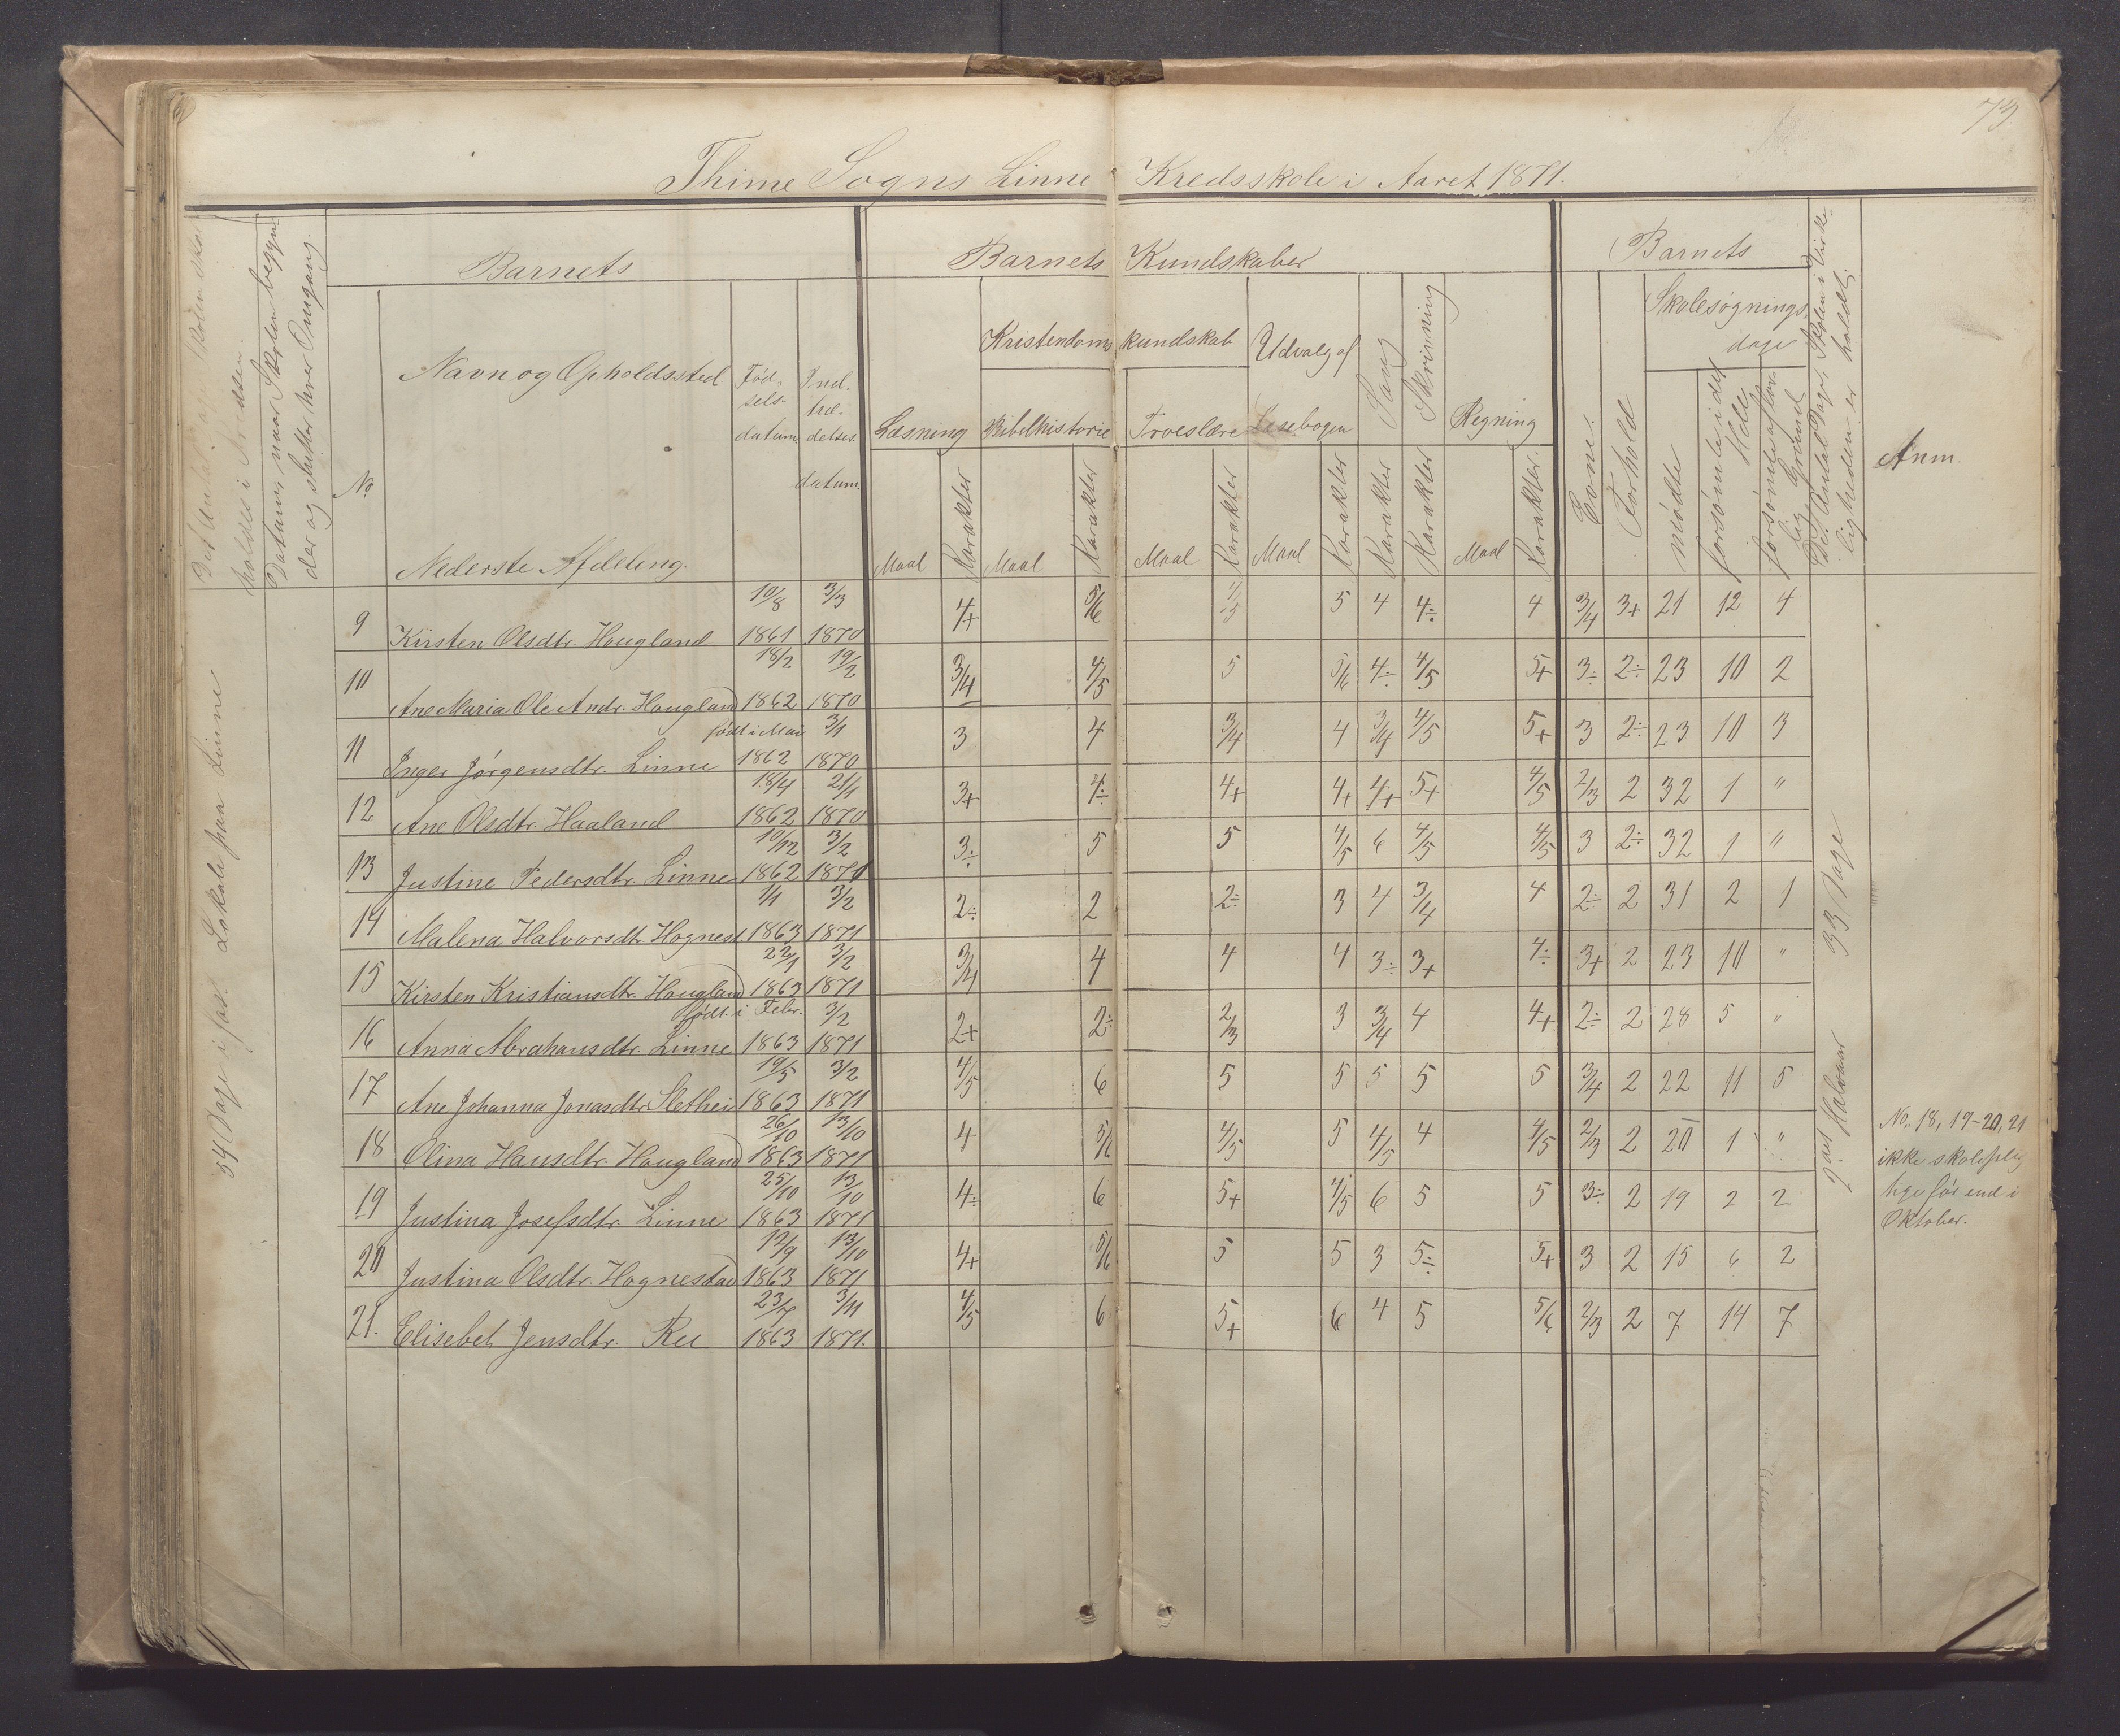 73
Thime Sogns Linne Kredsskole i Aaret 1871.
Det Antal Dage Skolen skal
holdes i Kredsen.
Datum, naar Skolen begyn-
der og slutter hver Omgang.
Barnets
Barnets Kundskaber
Barnets
No
Navn og Opholdssted
Fød-
sels-
datum
Ind-
træ-
delses
datum
Læsning
Kristendoms kundskab
Bibelhistorie
Troeslære
Udvalg af
Læsebogen
Sang
Skrivning
Regning
Evne.
Forhold
Skolesøgnings-
dage
mødte
forsømte i det
Hele
forsømte af lov-
lig Grund
Det Antal Dage, Skolen i Virke-
ligheden er holdt
Anm.
Nederste Afdeling.
Maal Karakter Maal Karakter Maal Karakter Maal Karakter Karakter Karakter Maal Karakter.
54 Dage i fast Lokale paa Linne
10/8 3/3
9 Kirsten Olsdtr. Hougland 1861 1870 4+ 5/6 4/5 5 4 4÷ 4 3/4 3+ 21 12 4
18/2 19/2
10 Ane Maria Ole Andr. Hougland 1862 1870 3/4 4/5 5 5/6 4÷ 4/5 5+ 3÷ 2÷ 23 10 2
født i Mai 3/1
11 Inger Jørgensdtr. Linne 1862 1870 3 4 3/4 4 3/4 4/5 5+ 3 2÷ 23 10 3
18/4 21/1
12 Ane Olsdtr. Haaland 1862 1870 3+ 4÷ 4+ 4+ 4+ 5+ 4/5 2/3 2 32 1 "
10/12 3/2
13 Justine Pedersdtr. Linne 1862 1871 3÷ 5 5 4/5 6 4/5 4/5 3 2÷ 32 1 "
1/1 3/2
14 Malena Halvorsdtr. Hognest 1863 1871 2÷ 2 2÷ 3 4 3/4 4 2÷ 2 31 2 1
22/1 3/2
15 Kirsten Kristiansdtr. Hougland 1863 1871 3/4 4 4 4 3÷ 3+ 4÷ 3+ 2 23 10 "
født i Febr. 3/2
16 Anna Abrahamsdtr. Linne 1863 1871 2+ 2÷ 2/3 3 3/4 4 4+ 2÷ 2 28 5 "
19/5 3/2
17 Ane Johanna Jonasdtr. Slethei 1863 1871 4/5 6 5 5 5 5 5 3/4 2 22 11 5
26/10 13/10
18 Olina Hansdtr. Hougland 1863 1871 4 5/6 4/5 5 4/5 4 4/5 2/3 2 20 1 "
25/10 13/10
19 Justina Josefsdtr. Linne 1863 1871 4÷ 6 5+ 4/5 6 5 5 3÷ 2 19 2 2
12/9 13/10
20 Justina Olsdtr. Hognestad 1863 1871 4+ 5/6 5 5 3 5÷ 5+ 3 2 15 6 2
23/7 3/11
21. Elisebet Jensdtr. Ree 1863 1871. 4/5 6 5+ 6 4 5 5/6 2/3 2 7 14 7
2det Halvaar 33 Dage
No. 18, 19-20, 21
ikke skoleplig
tige før end i
Oktober.